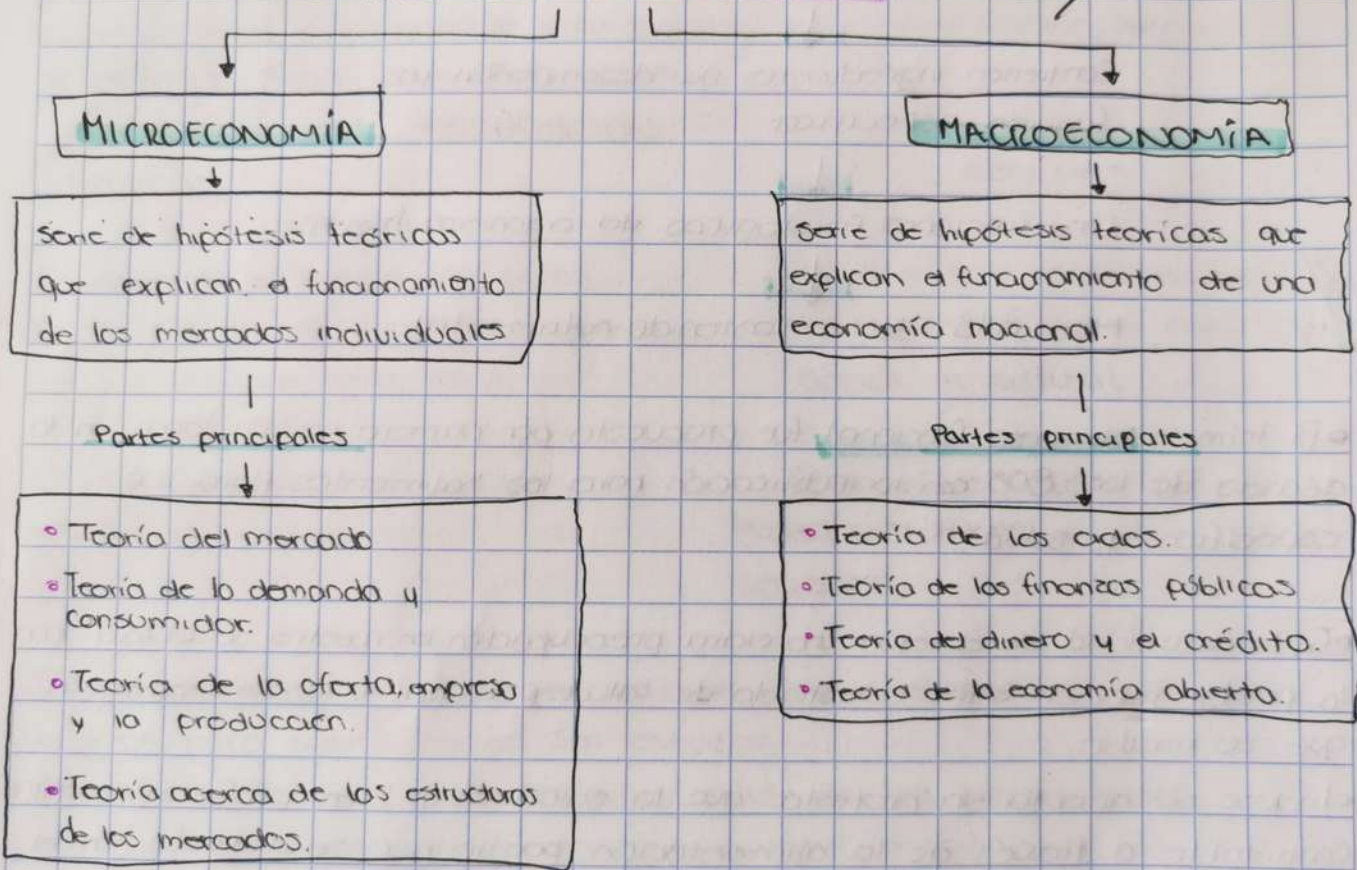 MICROECONOMÍA
Serie de hipótesis teóricas
que explican el funcionamiento
de los mercados individuales
Partes principales
• Teoría del mercado
• Teoría de la demanda y
consumidor.
• Teoría de la oferta, empresa
y la producción.
• Teoría acerca de las estructuras
de los mercados.
MACROECONOMÍA
Serie de hipótesis teóricas que
explican el funcionamiento de una
economía nacional.
Partes principales
• Teoría de los ciclos.
• Teoría de las finanzas públicas
• Teoría del dinero y el crédito.
• Teoría de la economía abierta.